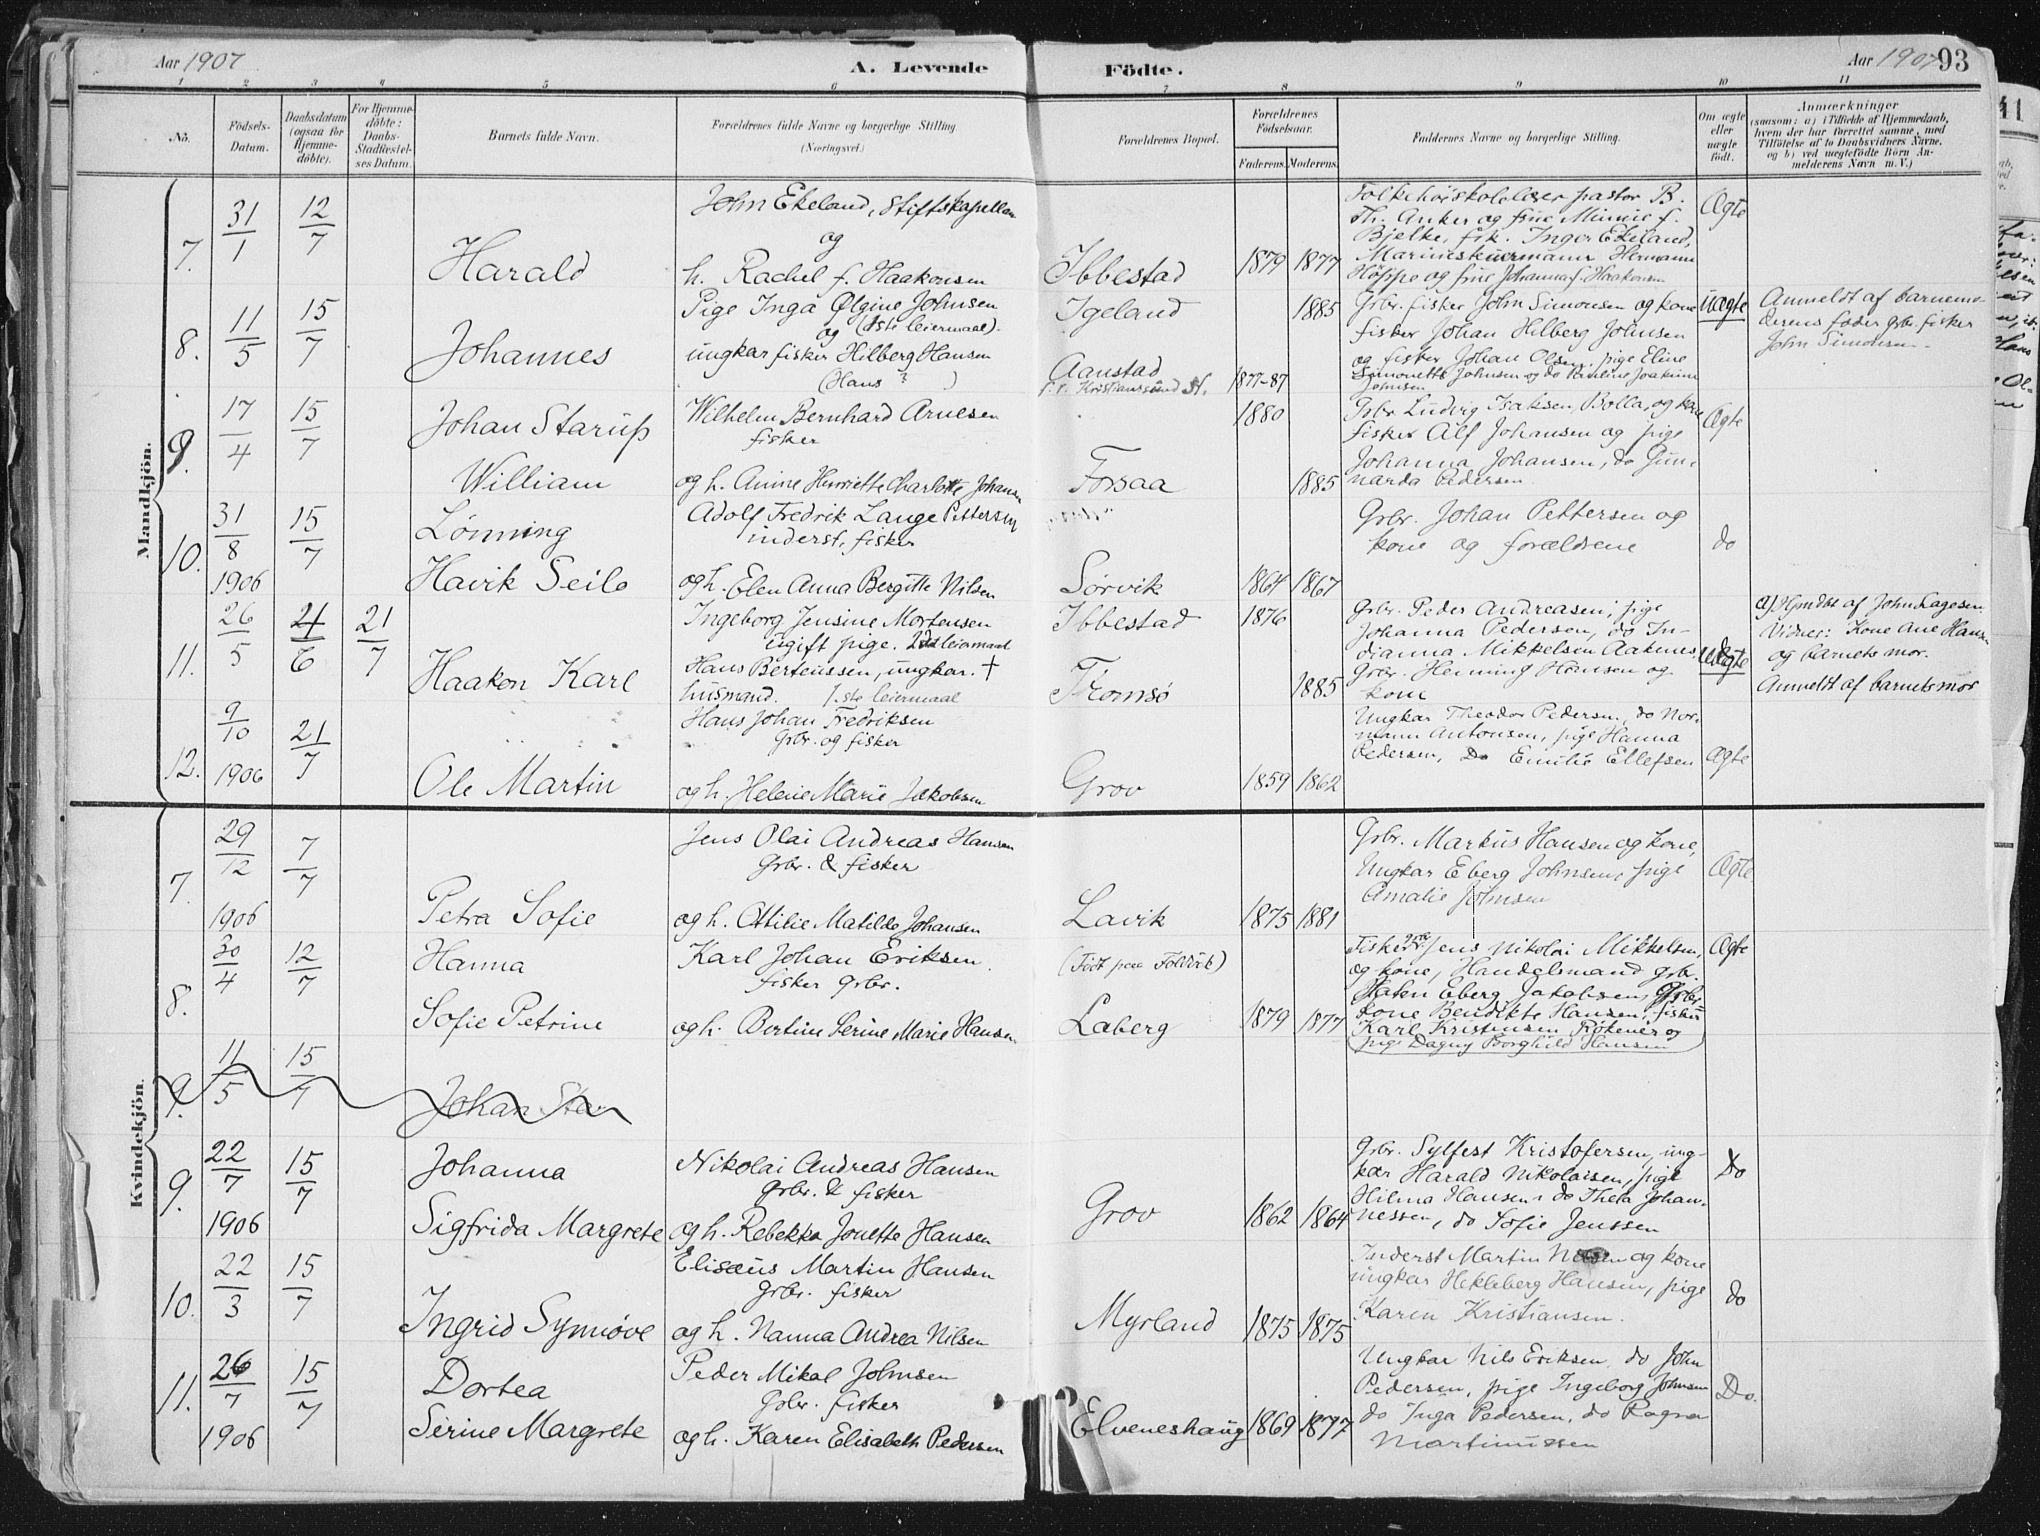 Aar 1907
A. Levende
Födte.
Aar 1907
93
1 2 3 4 5 6 7 8 9 10 11
No.
Födsels-
Datum.
Daabsdatum
(ogsaa for
Hjemme-
döbte).
For Hjemme-
döbte:
Daabs-
Stadfæstel-
ses Datum.
Barnets fulde Navn.
Forældrenes fulde Navne og borgerlige Stilling
(Næringsvei.)
Forældrenes Bopæl.
Forældrenes
Födselsaar.
Faderens. Moderens.
Faddernes Navne og borgerlige Stilling.
Om ægte
eller
uægte
födt.
Anmærkninger
(saasom: a) i Tilfælde af Hjemmedaab,
hvem der har forrettet samme, med
Tilföielse af to Daabsvidners Navne,
og b) ved uægtefödte Börn An-
melderens Navn m. V.)
Mandkjön.
7.
31/1
12/7
Harald
John Ekeland, Stiftskapellan
og
h. Rachel f. Haakonsen
Ibbestad
1879 1877
Folkehøiskolelærer pastor B.
Th. Anker og frue Minnie f.
Bjelke, frk. Inger Ekeland,
Marineskuermann Hermann
Höppe og frue Johanna f. Haakonsen
Ægte
8.
11/5
15/7
Johannes
Pige Inga Ølgine Johnsen
og (1ste leiermaal).
ungkar fisker Hilberg Hansen
(Hans ? )
Igeland
Aanstad
f. v. Kristiansund N.
1885
1877-87
Grbr. fisker John Simonsen og kone
fisker Johan Hilberg Johnsen
og fisker Johan Olsen, pige Eline
Simonette Johnsen og do Pauline Joakime
Johnsen
uægte
Anmeldt af barnemo-
derens fader grbr. fisker
John Simonsen.
9.
17/4
15/7
Johan Starup
William
Wilhelm Bernhard Arnesen
fisker
og h. Anine Henriette Charlotte Johansen
Forsaa
1880
1885
Grbr Ludvig Isaksen, Bolla, og kone
fisker Alf Johansen og pige
Johanna Johansen, do Gun-
narda Pedersen
Ægte
10.
31/8
1906
15/7
Lønning
Havik Seilo
Adolf Fredrik Lange Pettersen
inderst, fisker
og h. Elen Anna Bergitte Nilsen
Sørvik
1864 1867
Grbr. Johan Pettersen og
kone og forældrene
do
11.
26/5
21/6
21/7
Haakon Karl
Ingeborg Jensine Mortensen
ugift pige. leiermaal
Hans Berteussen, ungkar. †
husmand. 1ste leiermaal
Ibbestad
Tromsø
1876
1885
Grbr. Peder Andreasen; pige
Johanna Pedersen, do In-
dianna Mikkelsen Aaknes,
Grbr. Henning Hansen og
kone
Uægte
a) Hjmdbt af John Lagesen
Vidner: Kone Ane Hansen
og barnets mor.
Anmeldt af barnets mor
12.
9/10
1906
21/7
Ole Martin
Hans Johan Fredriksen
Grbr. og fisker
og h. Helene Marie Jakobsen
Grov
1859 1862
Ungkar Theodor Pedersen, do Nor-
mann Antonsen, pige Hanna
Pedersen, Do Emilie Ellefsen
Ægte
Kvindekjön.
7.
29/12
1906
7/7
Petra Sofie
Jens Olai Andreas Hansen
Grbr. & fisker
og h. Ottilie Matilde Johansen
Lavik
1875 1881
Grbr. Markus Hansen og kone,
Ungkar Eberg Johnsen, pige
Amalie Johnsen
Ægte
8.
30/4
12/7
Hanna
Sofie Petrine
Karl Johan Eriksen
fisker grbr.
og h. Bertine Serine Marie Hansen
(Født paa Foldvik)
Laberg
1879 1877
Fisker grbr Jens Nikolai Mikkelsen,
og kone, Handelsmand grbr.
Haken Eberg Jakobsen, Grbr-
kone Bendikte Hansen, fisker
Karl Kristensen Røkenes og
pige Dagny Borghild Hansen
Ægte
9.
11/5
15/7
Johan Star
9.
22/7
1906
15/7
Johanna
Sigfrida Margrete
Nikolai Andreas Hansen
Grbr. & fisker
og h. Rebekka Jonette Hansen
Grov
1862 1864
Grbr. Sylfest Kristofersen, ung-
kar Harald Nikolaisen, pige
Hilma Hansen, do Thela Johan-
nessen, do Sofie Jenssen
Do
10.
22/3
15/7
Ingrid Synnøve
Elisæus Martin Hansen
Grbr. fisker
og h. Nanna Andrea Nilsen
Myrland
1875 1875
Inderst Martin og kone
ungkar Hekleberg Hansen, pige
Karen Kristiansen.
do
11.
26/7
1906
15/7
Dortea
Serine Margrete
Peder Mikal Johnsen
Grbr. fisker
og h. Karen Elisabeth Pedersen
Elveneshaug
1869 1877
Ungkar Nils Eriksen, do John
Pedersen, pige Ingeborg Johnsen
do Inga Pedersen, do Ragna
Martinussen
Do.